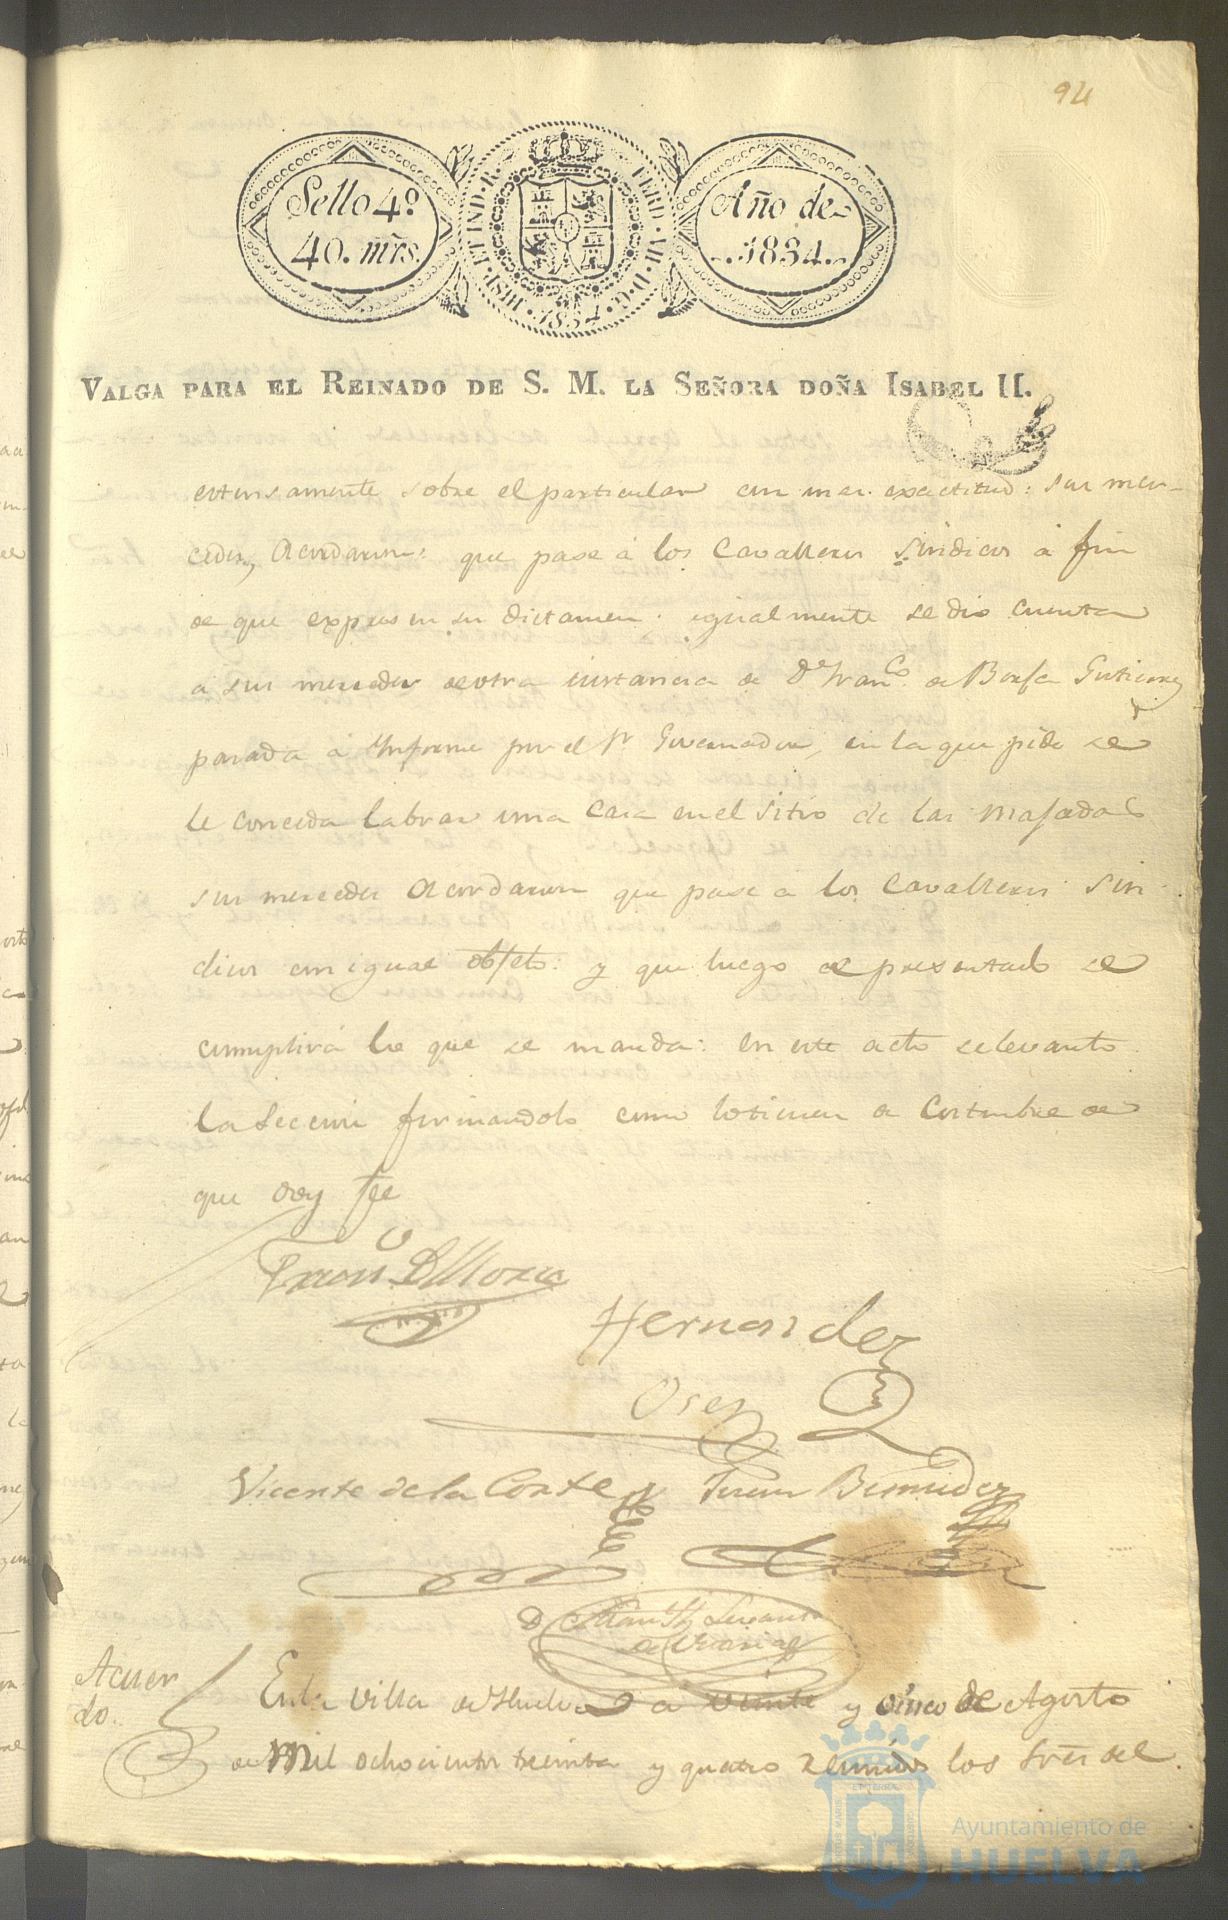 94
Sello 4º
40. mrs.
HISP. ET IND. R.
FERD. VII. D. G.
1834
Año de
1834.
VALGA PARA EL REINADO DE S. M. LA SEÑORA DOÑA ISABEL II.
estensamente sobre el particular con mas exactitud: sus mer-
cedes, Acordaron: que pase á los Cavalleros sindicos á fin
de que espresen su dictamen: igualmente se dio cuenta
á sus mercedes de otra instancia de Dn Franco de Borja Gutierrez
pasada á Informe por el Sr Governador, en la que pide se
le conceda labrar una Casa en el sitio de las Majadas
sus mercedes Acordaron que pase á los Cavalleros sin-
dicos con igual objeto: y que luego de presentado se
cumplirá lo que se manda: en este acto se levanto
la Secion firmandolo como lo tienen de Costumbre de
que doy fee
Hernandez
Vicente de la Corte Juan Bermudez
Acuer
do.
En la villa de Huelva á veinte y cinco de Agosto
de Mil ochocientos treinta y quatro reunidos los Sres del
Ayuntamiento de
HUELVA